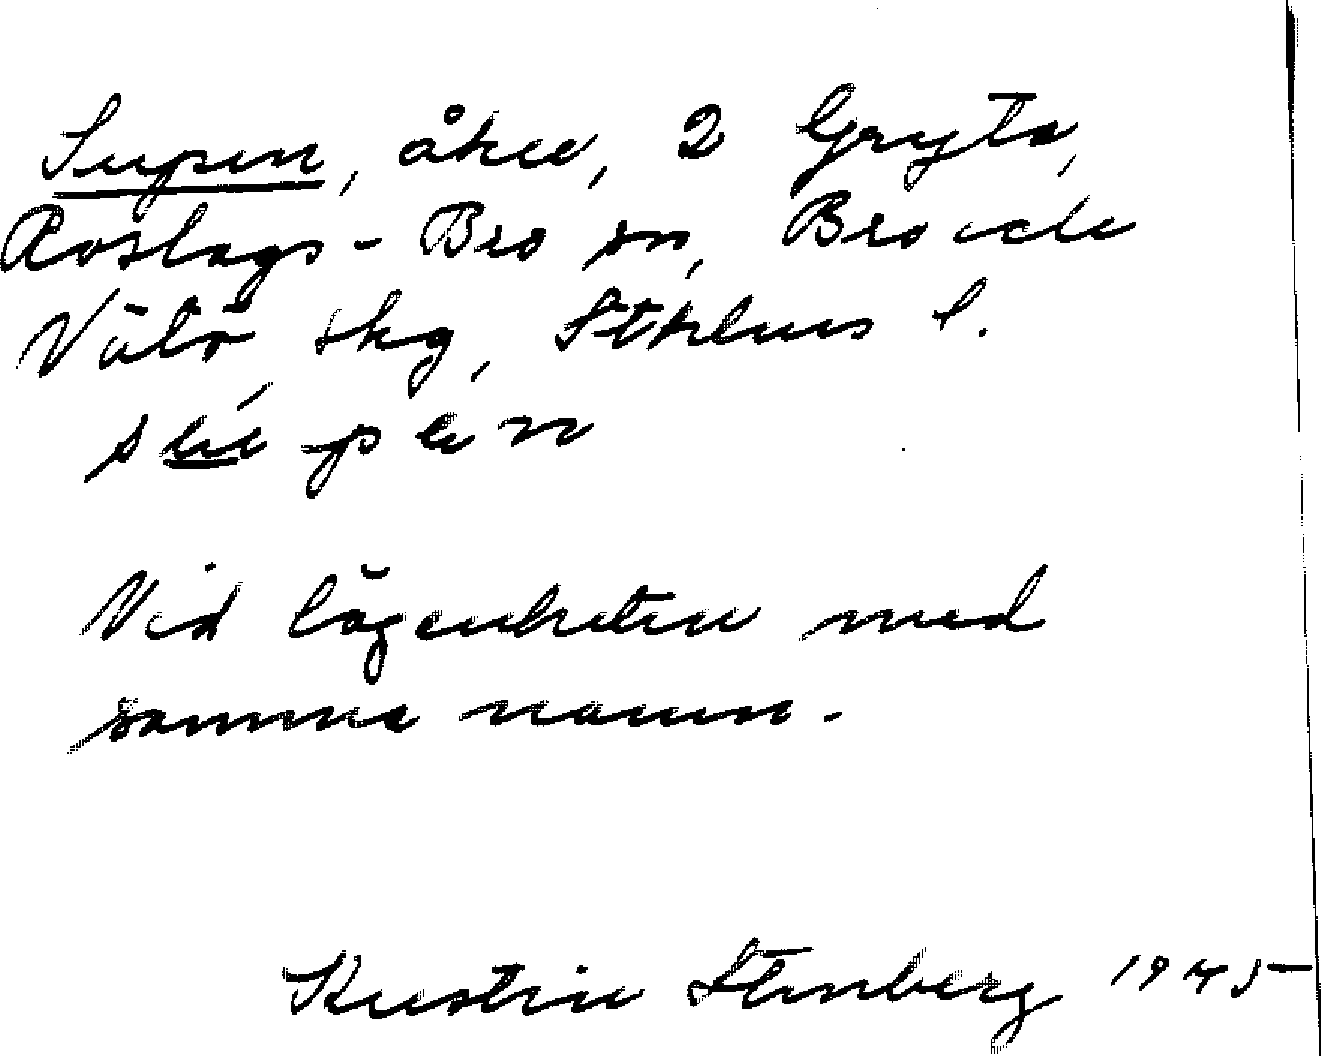 Supen, åker, 2 Gryta,
Roslags-Bro sn, Bro och
Vätö skg, Sthlms l.
Vid lägenheten med
samma namn.
Kerstin Stenberg 1945